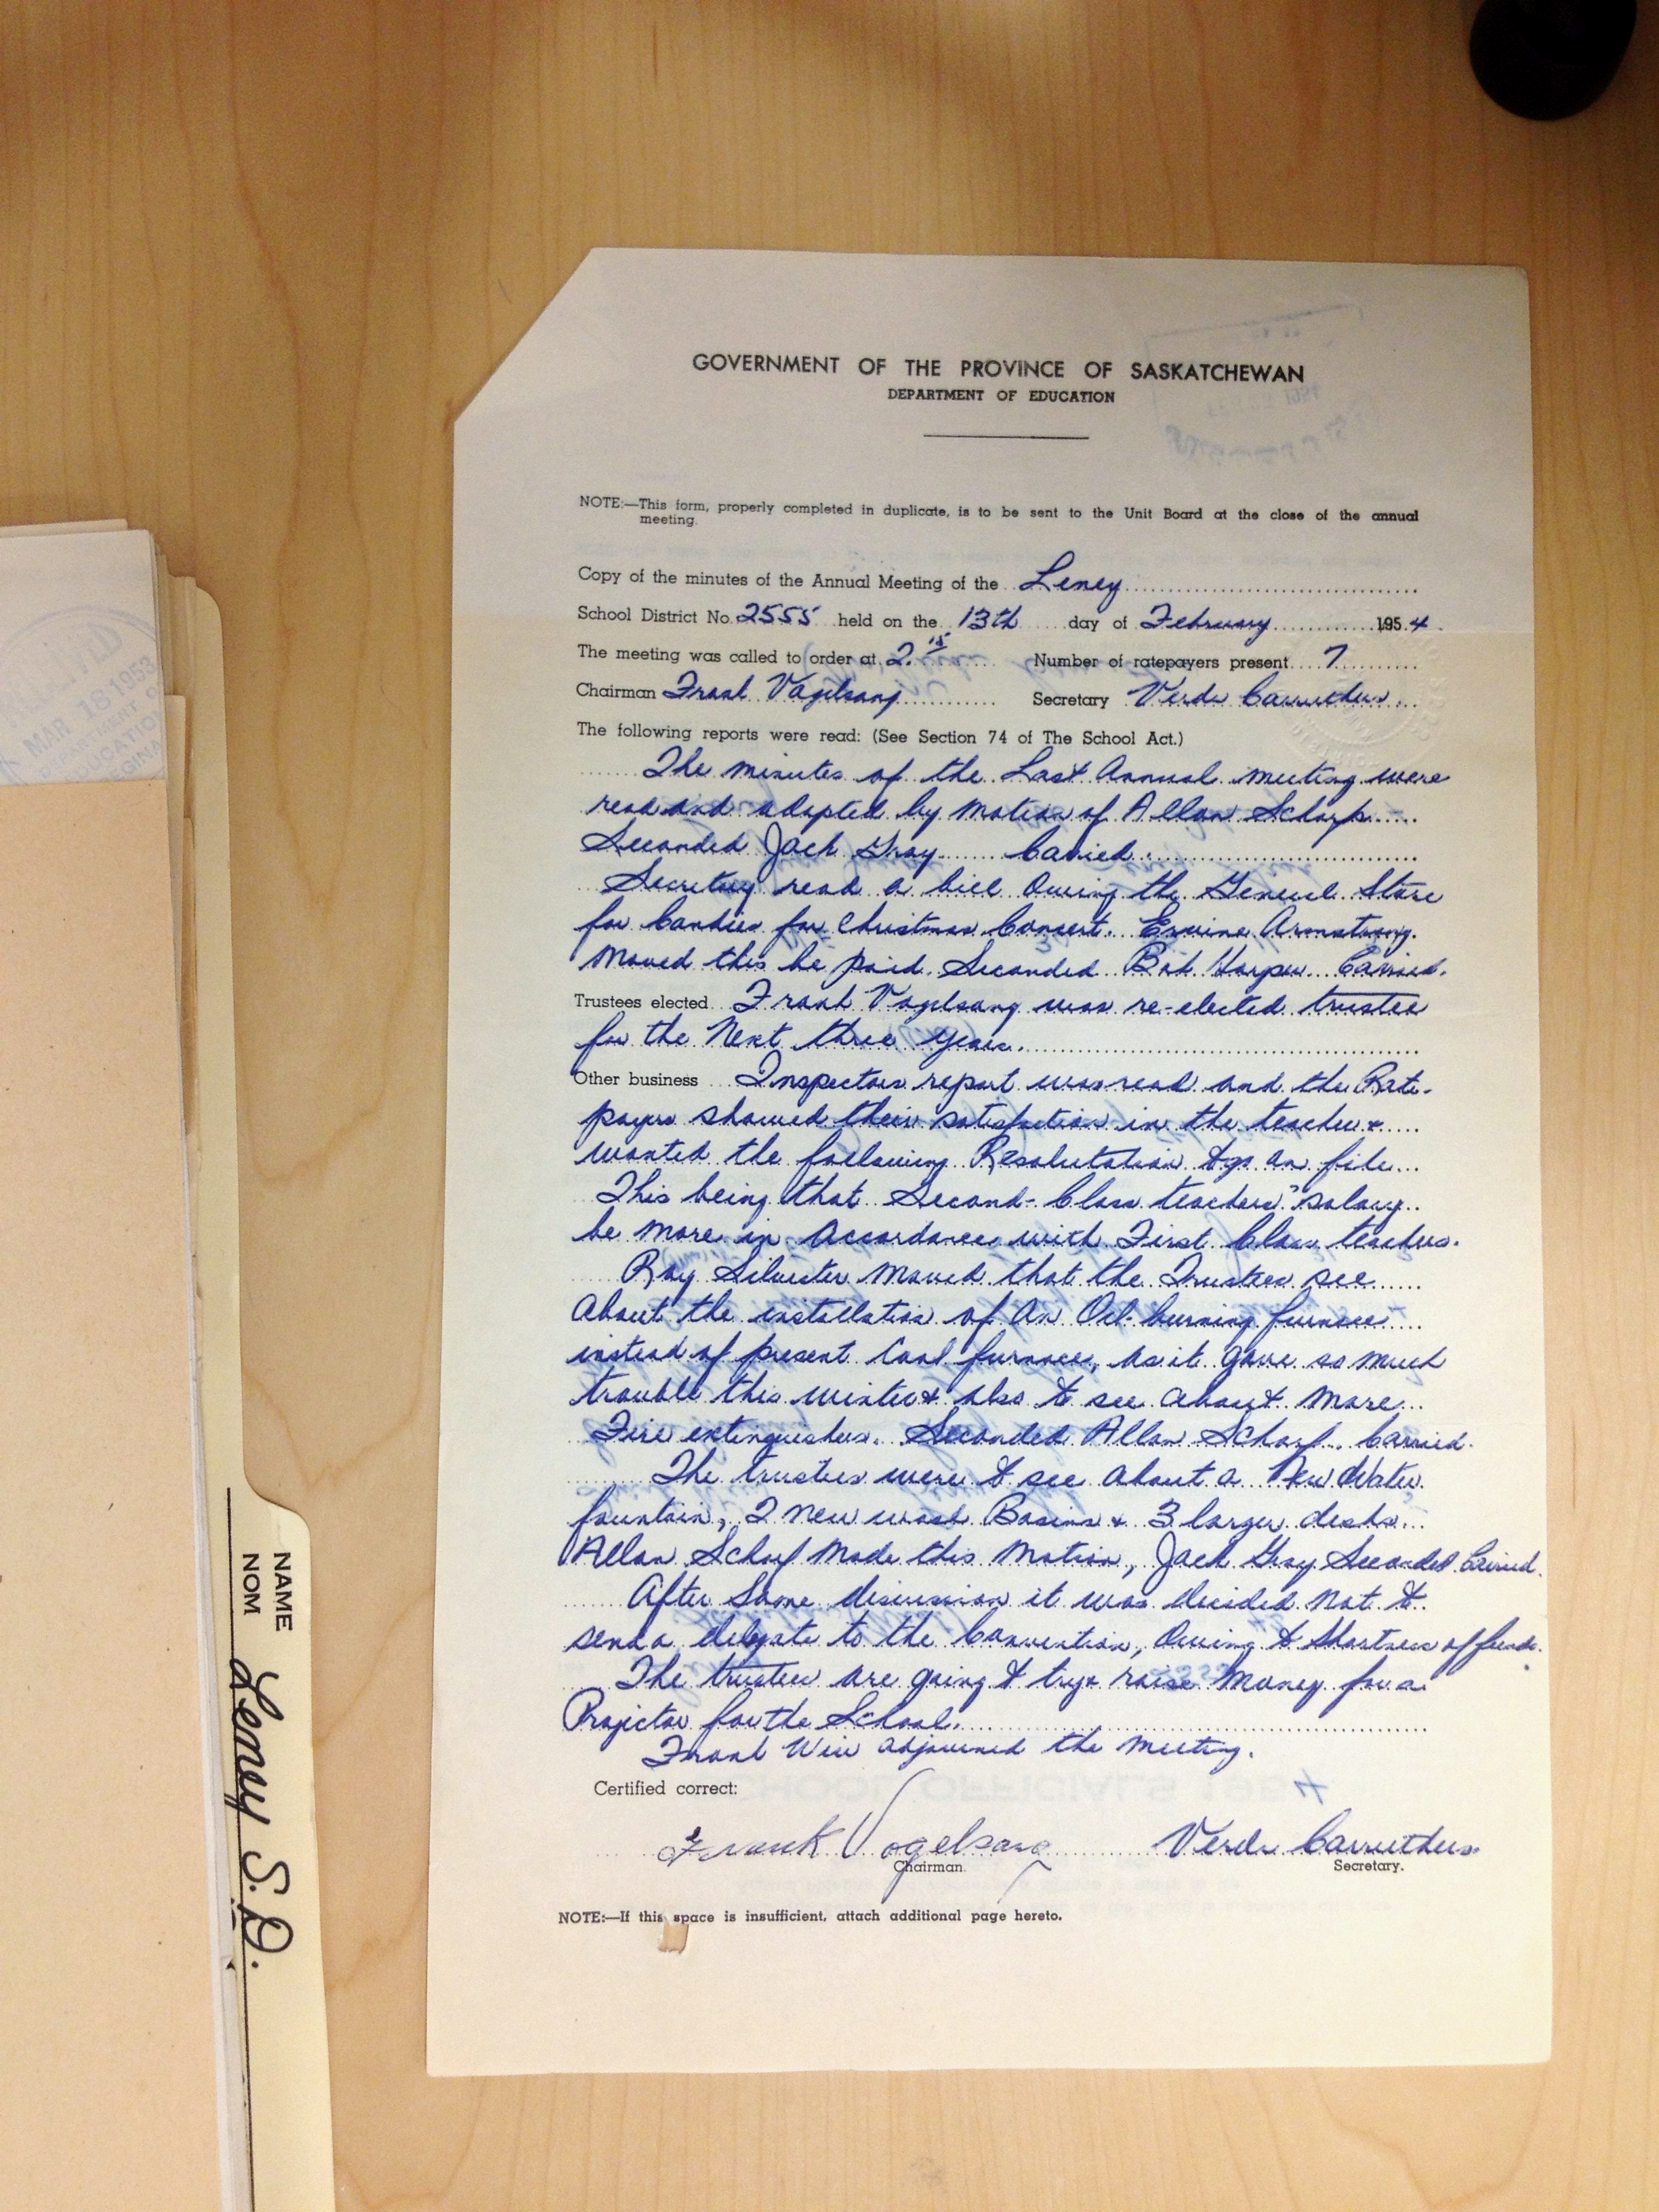 GOVERNMENT OF THE PROVINCE OF SASKATCHEWAN
DEPARTMENT OF EDUCATION
NOTE:—This form, properly completed in duplicate, is to be sent to the Unit Board at the close of the annual
meeting.
Copy of the minutes of the Annual Meeting of the Leney
School District No. 2555 held on the 13th day of February 1954
The meeting was called to order at 2.15 Number of ratepayers present 7
Chairman Frank Vogelsang Secretary Verda Carruthers
The following reports were read: (See Section 74 of The School Act.)
The minutes of the Last Annual meeting were
read and adopted by motion of Allan Scharf
Seconded Jack Gray Carried.
Secretary read a bill Owing the General Store
for Candies for Christmas Concert. Ervine Armstrong
moved this be paid. Seconded Bob Harper Carried.
Trustees elected Frank Vogelsang was re-elected trustee
for the Next three years.
Other business Inspectors report was read and the Rate-
payers showed their satisfaction in the teacher &
wanted the following Resolutation to go on file
This being that Second-Class teachers' salary
be more in Accordance with First Class teachers.
Ray Silvester moved that the Trustees see
About the installation of An Oil-burning furnace
instead of present Coal furnace, as it gave so much
trouble this winter & also to see about more
Fire extinguishers. Seconded Allan Scharf. Carried.
The trustees were to see about a New Water
fountain, 2 new wash Basins & 3 larger desks
Allan Scharf Made this Motion, Jack Gray Seconded Carried.
After Some discussion it was decided not to
send a delegate to the Convention, Owing to Shortness of funds.
The trustees are going to try & raise Money for a
Projector for the School.
Frank Weir adjourned the meeting.
Certified correct:
Frank Vogelsang Verda Carruthers
Chairman. Secretary.
NOTE:—If this space is insufficient, attach additional page hereto.
NAME
NOM Leney S.D.
MAR 18 1953